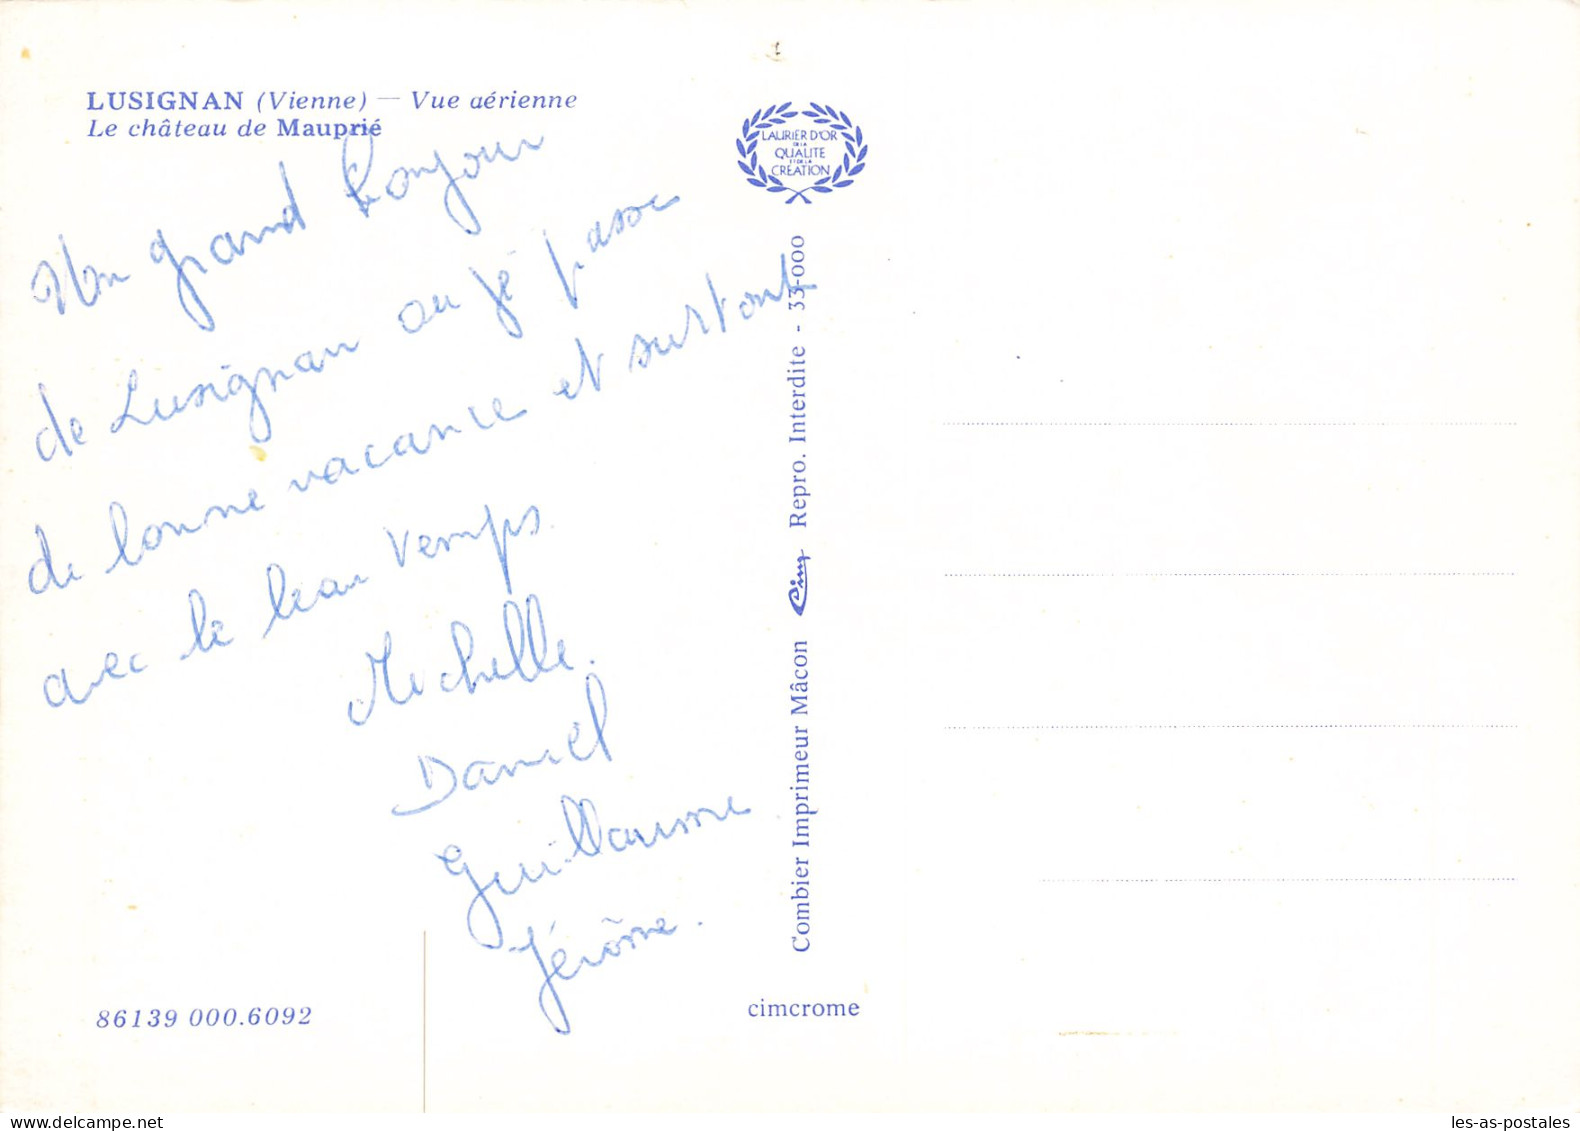 LUSIGNAN (Vienne) — Vue aérienne
Le château de Mauprié
Un grand bonjour
de Lusignan ou je passe
de bonne vacance et surtout
avec le beau temps.
Michelle.
Daniel
Guillaume
Jérôme.
86139 000.6092
LAURIER D'OR
DE LA
QUALITE
ET DE LA
CREATION
Combier Imprimeur Mâcon Cim Repro. Interdite - 33-000
cimcrome
delcampe.net
les-as-postales